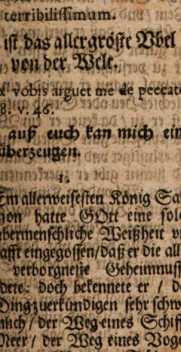 terribilissimum.
ist das allergröste Vbel
von der Welt.
vobis arguet me de peccato
8. v. 46.
auß euch kan mich ein
überzeugen.
1.
Em allerweisesten König Sa
mon hatte GOtt eine sol
übermenschliche Weißheit v
afft eingegossen/daß er die all
verborgneste Geheimnuss
dete: doch bekennete er / d
Ding zuerkündigen sehr schw
mlich / der Weg eines Schiff
Meer / der Weg eines Voge